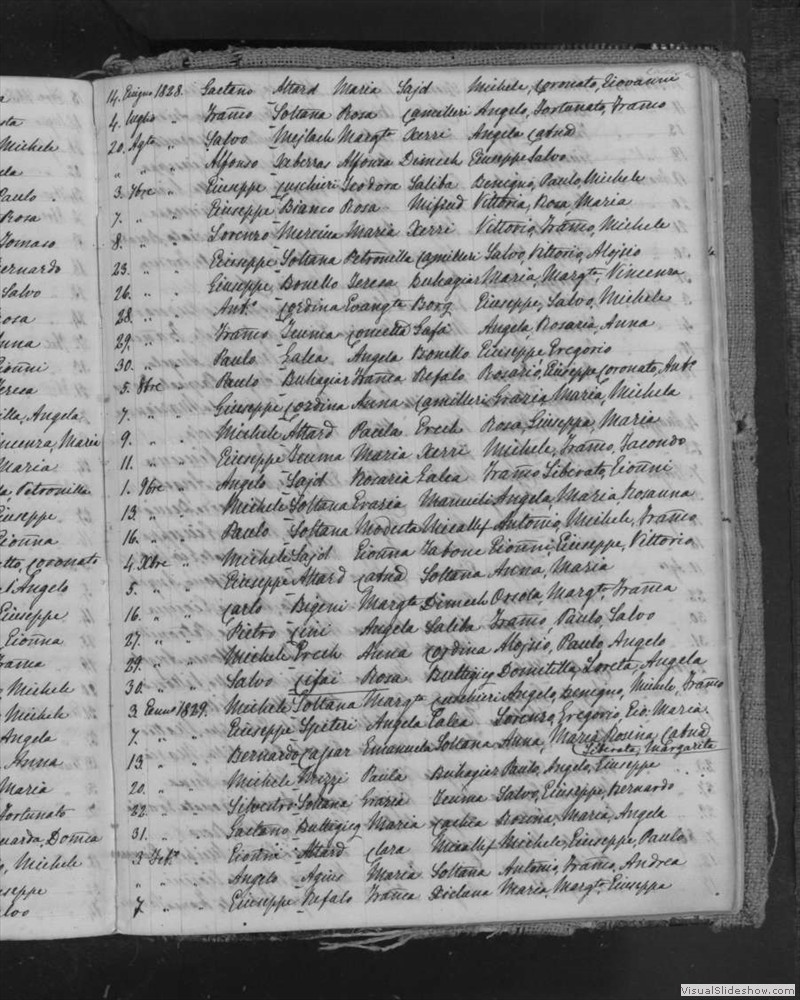 a
sta
Michele
ela
Paulo
Rosa
Tomaso
Bernardo
Salvo
Rosa
Anna
Gionñi
Teresa
illa, Angela
incenza, Maria
Maria
la, Petronilla
Giuseppe
Gionña
etto, Coronato
l'Angelo
Giuseppe
Gionña
Franca
Michele
Michele
Angela
Anna
Maria
Fortunato
uarda, Domca
o, Michele
useppe
alvo
14. Giugno 1828. Gaetano Attard Maria Sajd Michele, Coronato, Giovanni
4. Luglio " Franco Soltana Rosa Camilleri Angelo, Fortunato, Franco
20. Agto " Salvo Mejlach Margta Xerri Angela Catnã
" " " Alfonso Xaberras Alfonsa Dimech Giuseppe Salvo
3. 7bre " Giuseppe Cuschieri Teodora Saliba Benigno, Paulo, Michele
7. " " Giuseppe Bianco Rosa Mifsud Vittoria, Rosa, Maria
8. " " Lorenzo Mercica Maria Xerri Vittorio, Franco, Michele
23. " " Giuseppe Soltana Petronilla Camilleri Salvo, Vittorio, Alojsio
26. " " Giuseppe Bonello Teresa Buhagiar Maria, Margta, Vincenza
28. " " Anto Cordina Evangta Borg Giuseppe, Salvo, Michele
29. " " Franco Teuma Concetta Gafà Angela, Rosaria, Anna
30. " " Paulo Galea Angela Bonello Giuseppe Gregorio
5. 8bre " Paulo Buhagiar Franca Refalo Rosario, Giuseppe, Coronato, Anto
7. " " Giuseppe Cordina Anna Camilleri Grazia Maria, Michela
9. " " Michele Attard Paula Grech Rosa, Giuseppa, Maria
11. " " Giuseppe Teuma Maria Xerri Michele, Franco, Facondo
1. 9bre " Angelo Sajd Rosaria Galea Franco Liberato, Gionñi
13. " " Michele Soltana Grazia Mamuli Angela, Maria Rosanna
16. " " Paulo Soltana Modesta Micallef Antonio, Michele, Franco
4. Xbre " Michele Sajd Gionña Tabone Gionñi, Giuseppe, Vittorio
5. " " Giuseppe Attard Catnã Soltana Anna, Maria
16. " " Carlo Bigeni Margta Dimech Orsola, Margta, Franca
27. " " Pietro Cini Angela Saliba Franco, Paulo, Salvo
29. " " Michele Grech Anna Cordina Alojsio, Paulo, Angelo
30. " " Salvo Cifai Rosa Buttigieg Domitilla, Loreta, Angela
3. Genno 1829. Michele Soltana Margta Cuschieri Angelo, Benigno, Michele, Franco
7. " " Giuseppe Spiteri Angela Galea Lorenzo, Gregorio, Gio: Maria
13. " " Bernardo Caspar Emanuela Soltana Anna, Maria Rosina, Catnã
Liberata, Margarita
20. " " Michele Mizzi Paula Buhagiar Paulo, Angelo, Giuseppe
22. " " Silvestro Soltana Grazia Teuma Salvo, Giuseppe, Bernardo
31. " " Gaetano Buttigieg Maria Cachia Rosina, Maria, Angela
3. Febo " Gionñi Attard Clara Micallef Michele, Giuseppe, Paulo
" " " Angelo Agius Maria Soltana Antonio, Franco, Andrea
7. " " Giuseppe Refalo Franca Xiclana Maria, Margta, Giuseppa
VisualSlideshow.com